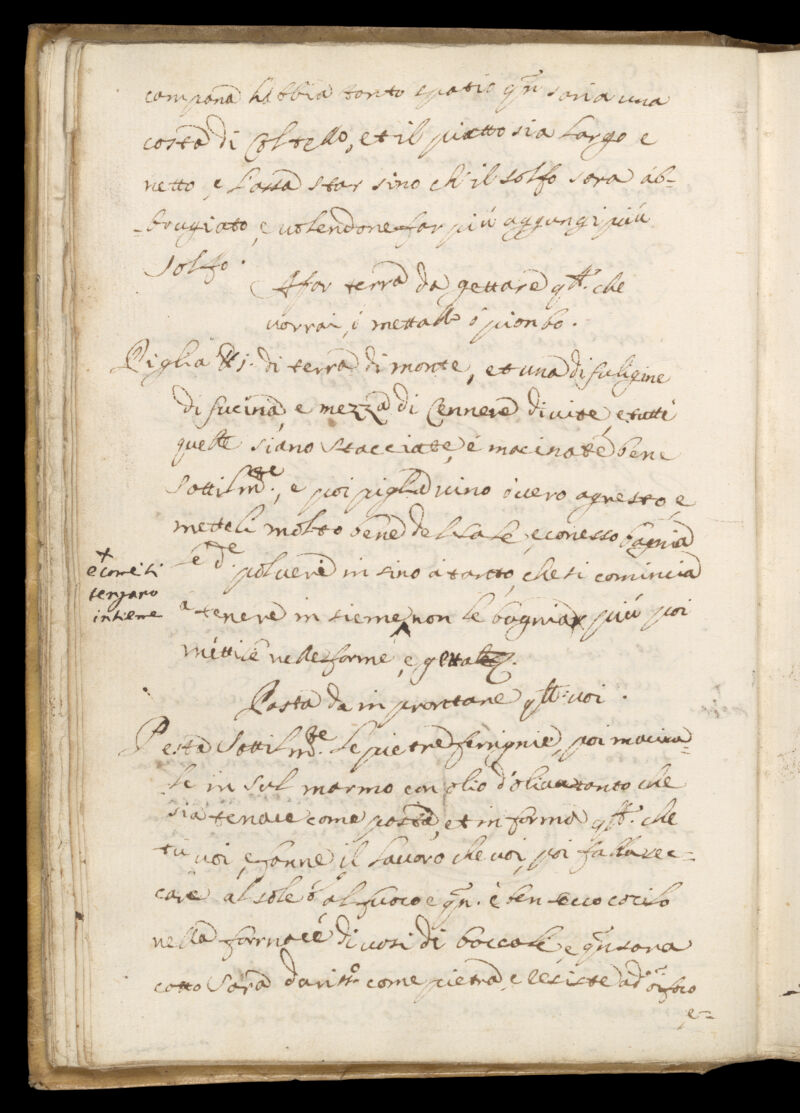 campana habbia tanto spatio qn saria una
costa di Coltello, et il piatto sia largo e
netto, e lassa star sino ch'il solfo sara ab-
-brugiato, e volendone far più aggiungi più
solfo.
A far terra da gettare qll. che
vorrai, ò mettallo ò piombo.
Piglia ℔ j. di terra di monte, et una di fuligine
di fucina, e mezza di Cennere di vite, e tutti
queste siano stacciate, e macinate bene
sottilmte., e poi piglia vino overo agresto, e
metteli molto bene del sale, e con esso bagnia
le de. polvere in sino à tanto, che si comincia
+
e come si
tengano
insieme
a tenere insieme ^ non le bagniar più poi
mettile nelle forme, e getta
Pasta da improntare qll: voi.
Pesta sottilmte. le pietre ferrignie, poi macina-
le in sul marmo con olio d'oliva tanto che
sia tenace come pasta, et informa qll. che
tu voi, e fanne il lavoro che voi, poi falla sec-
care al sole ò al fuoco e qn. è ben secco cocilo
nella fornace di vasi di boccale, e qn sara
cotto sara duriss.o come pietra, e resiste ad ogni foco
e-